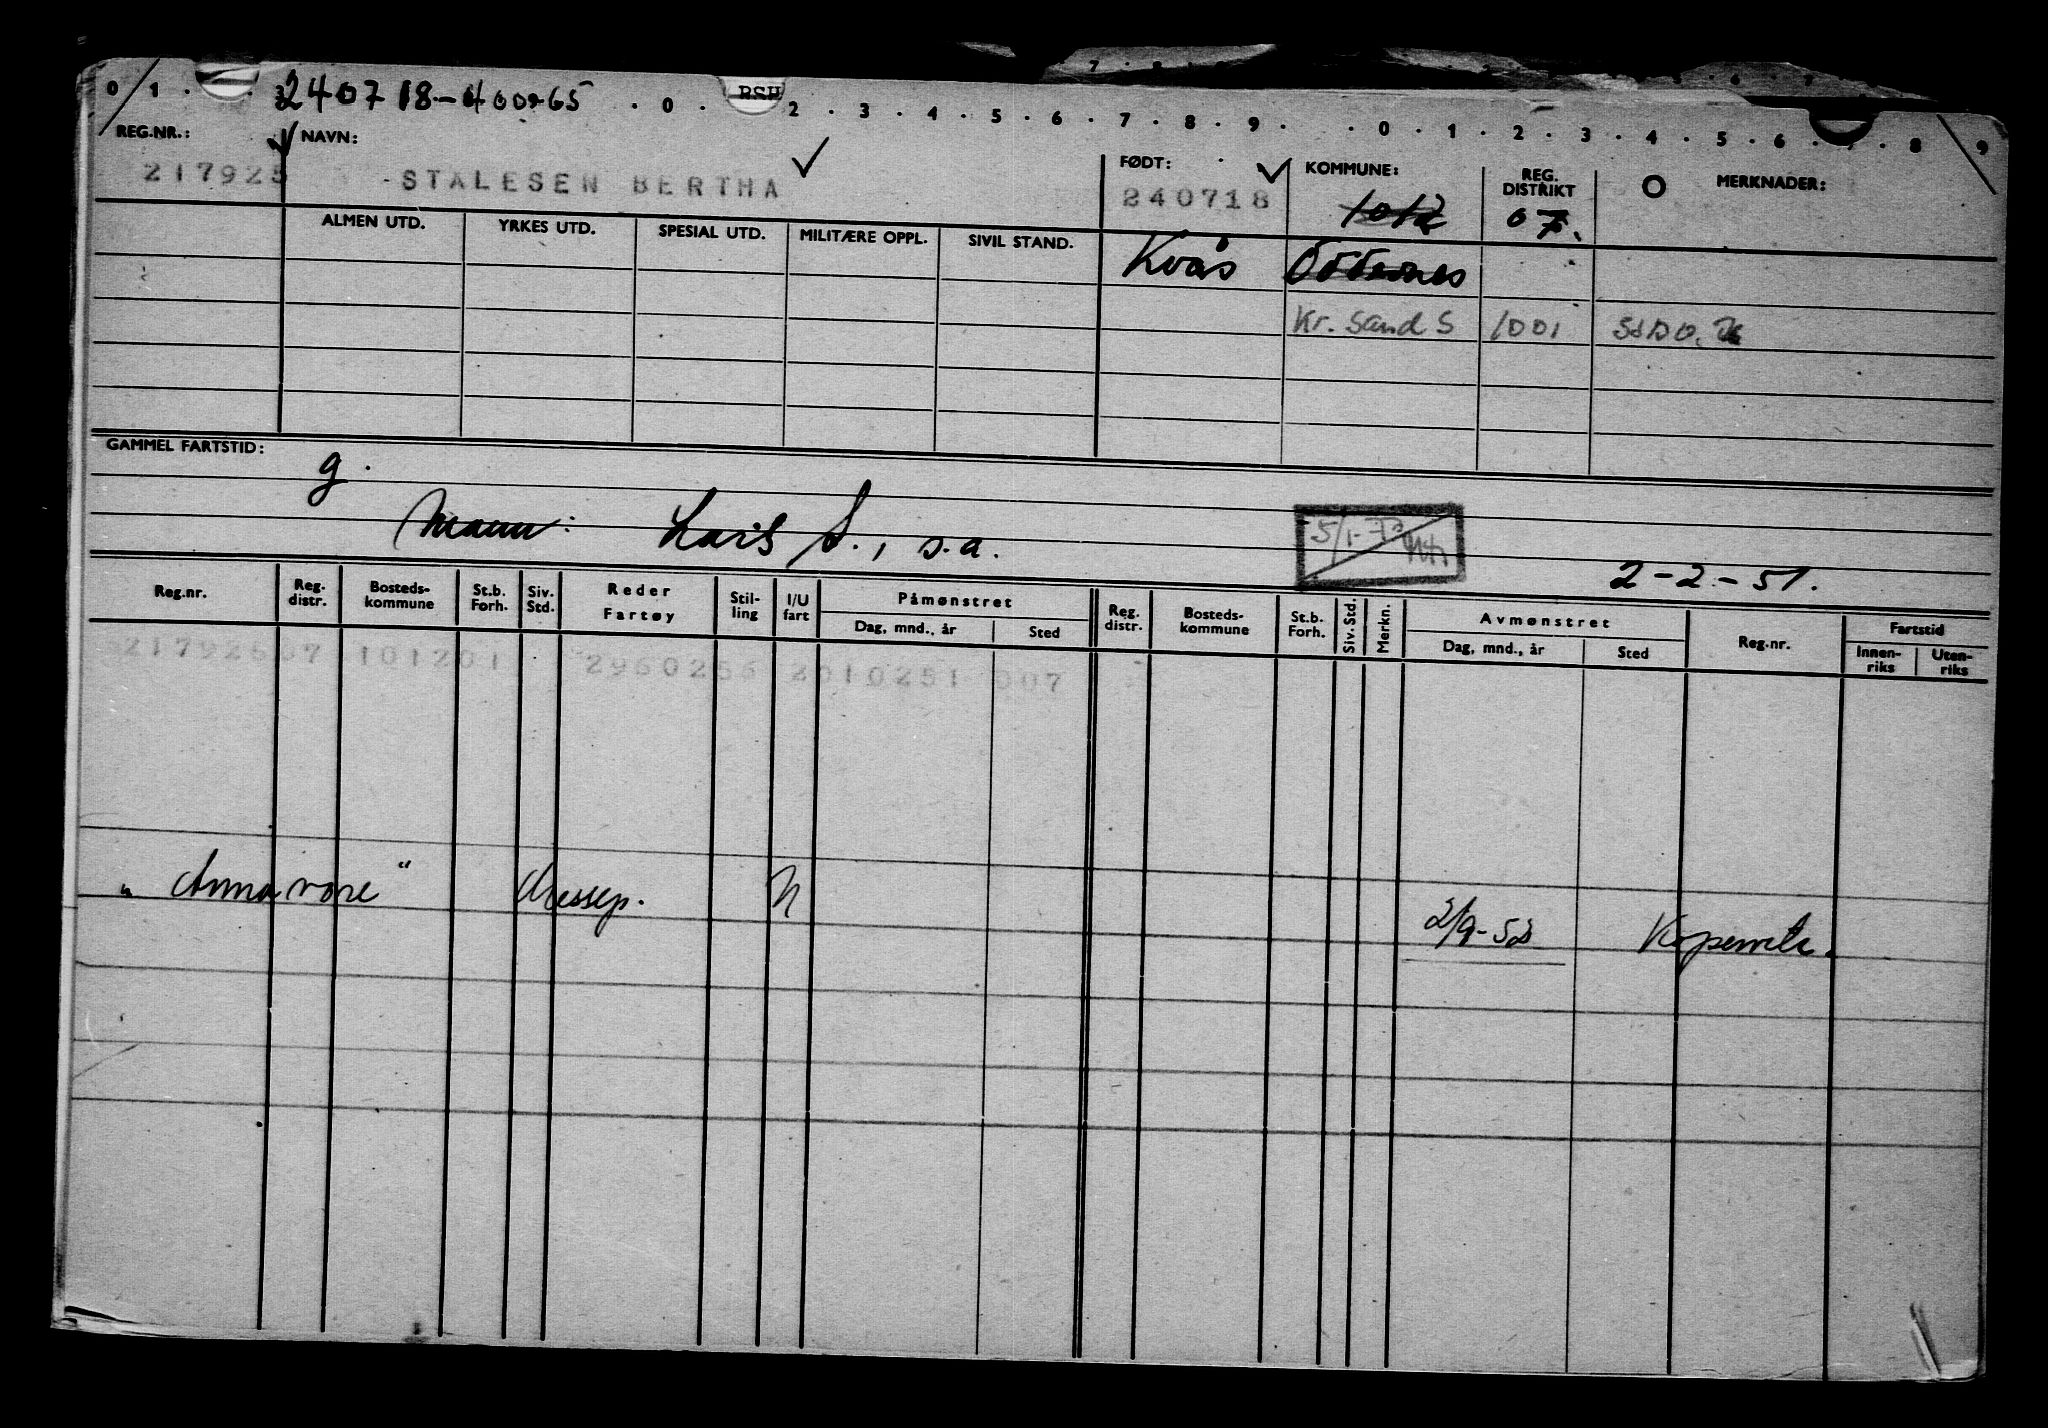 0 1 . 240718-40065 . 0 . BSH 2 . 3 . 4 . 5 . 6 . 7 . 8 . 9 . . 0 . 1 . 2 . 3 . 4 . 5 . 6 . 7 . 8 9
REG.NR.: NAVN: FØDT: KOMMUNE: REG. DISTRIKT MERKNADER:
217925 STALESEN BERTHA 240718 1012 07.
ALMEN UTD. YRKES UTD. SPESIAL UTD. MILITÆRE OPPL. SIVIL STAND. Kvås Oddernes
Kr. Sand S 1001
GAMMEL FARTSTID:
g.
Mann: Lars S., s.a.
2-2-51.
Reg.nr. Reg. distr. Bosteds-kommune St.b. Forh. Siv. Std. Reder Fartøy Stil-ling I/U fart Påmønstret Dag, mnd., år Sted Reg. distr. Bosteds-kommune St.b. Forh. Siv. Std. Merkn. Avmønstret Dag, mnd., år Sted Reg.nr. Fartstid Innen-riks Uten-riks
101201 2960256 2010251 007
" Annavore " Messep. N 2/9-52